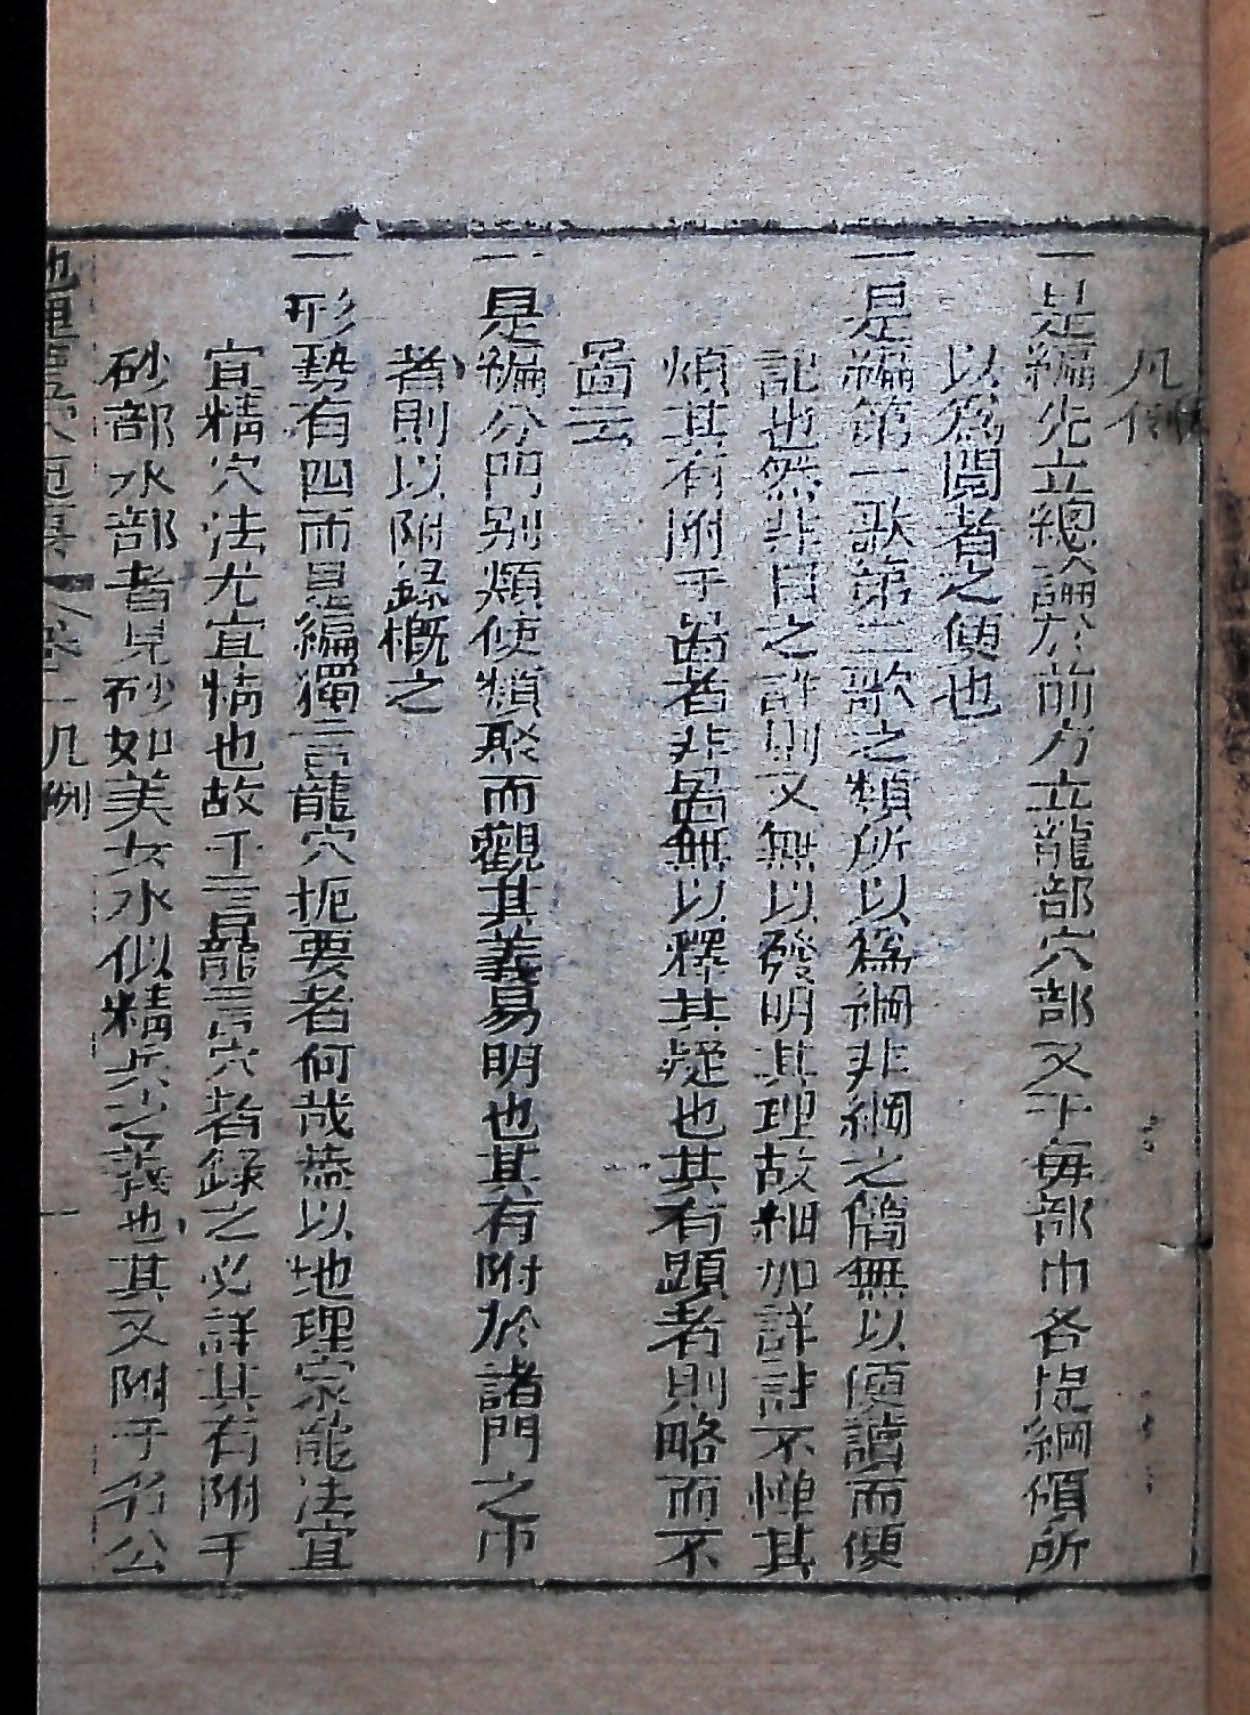 凡例
一是編先立總論於前方立龍部穴部又于每部巾各提綱領所
以爲閲者之便也
一是編第一歌第二歌之類所以爲綱非綱之簡無以便讀而便
記也然非目之詳則又無以發明其理故細加詳註不憚其
煩其有附于啚者非啚無以釋其疑也其有顕者則略而不
啚云
一是編分門别類使類聚而觀其義易明也其有附於諸門之巾
者則以附録概之
一形勢有四而是編獨言龍穴扼要者何哉葢以地理家龍法宜
宜精穴法尤宜情也故于言龍言穴者録之必詳其有附于
砂部水部者見砂如美女水似精兵之義也其又附于名公
地理 凡例 一